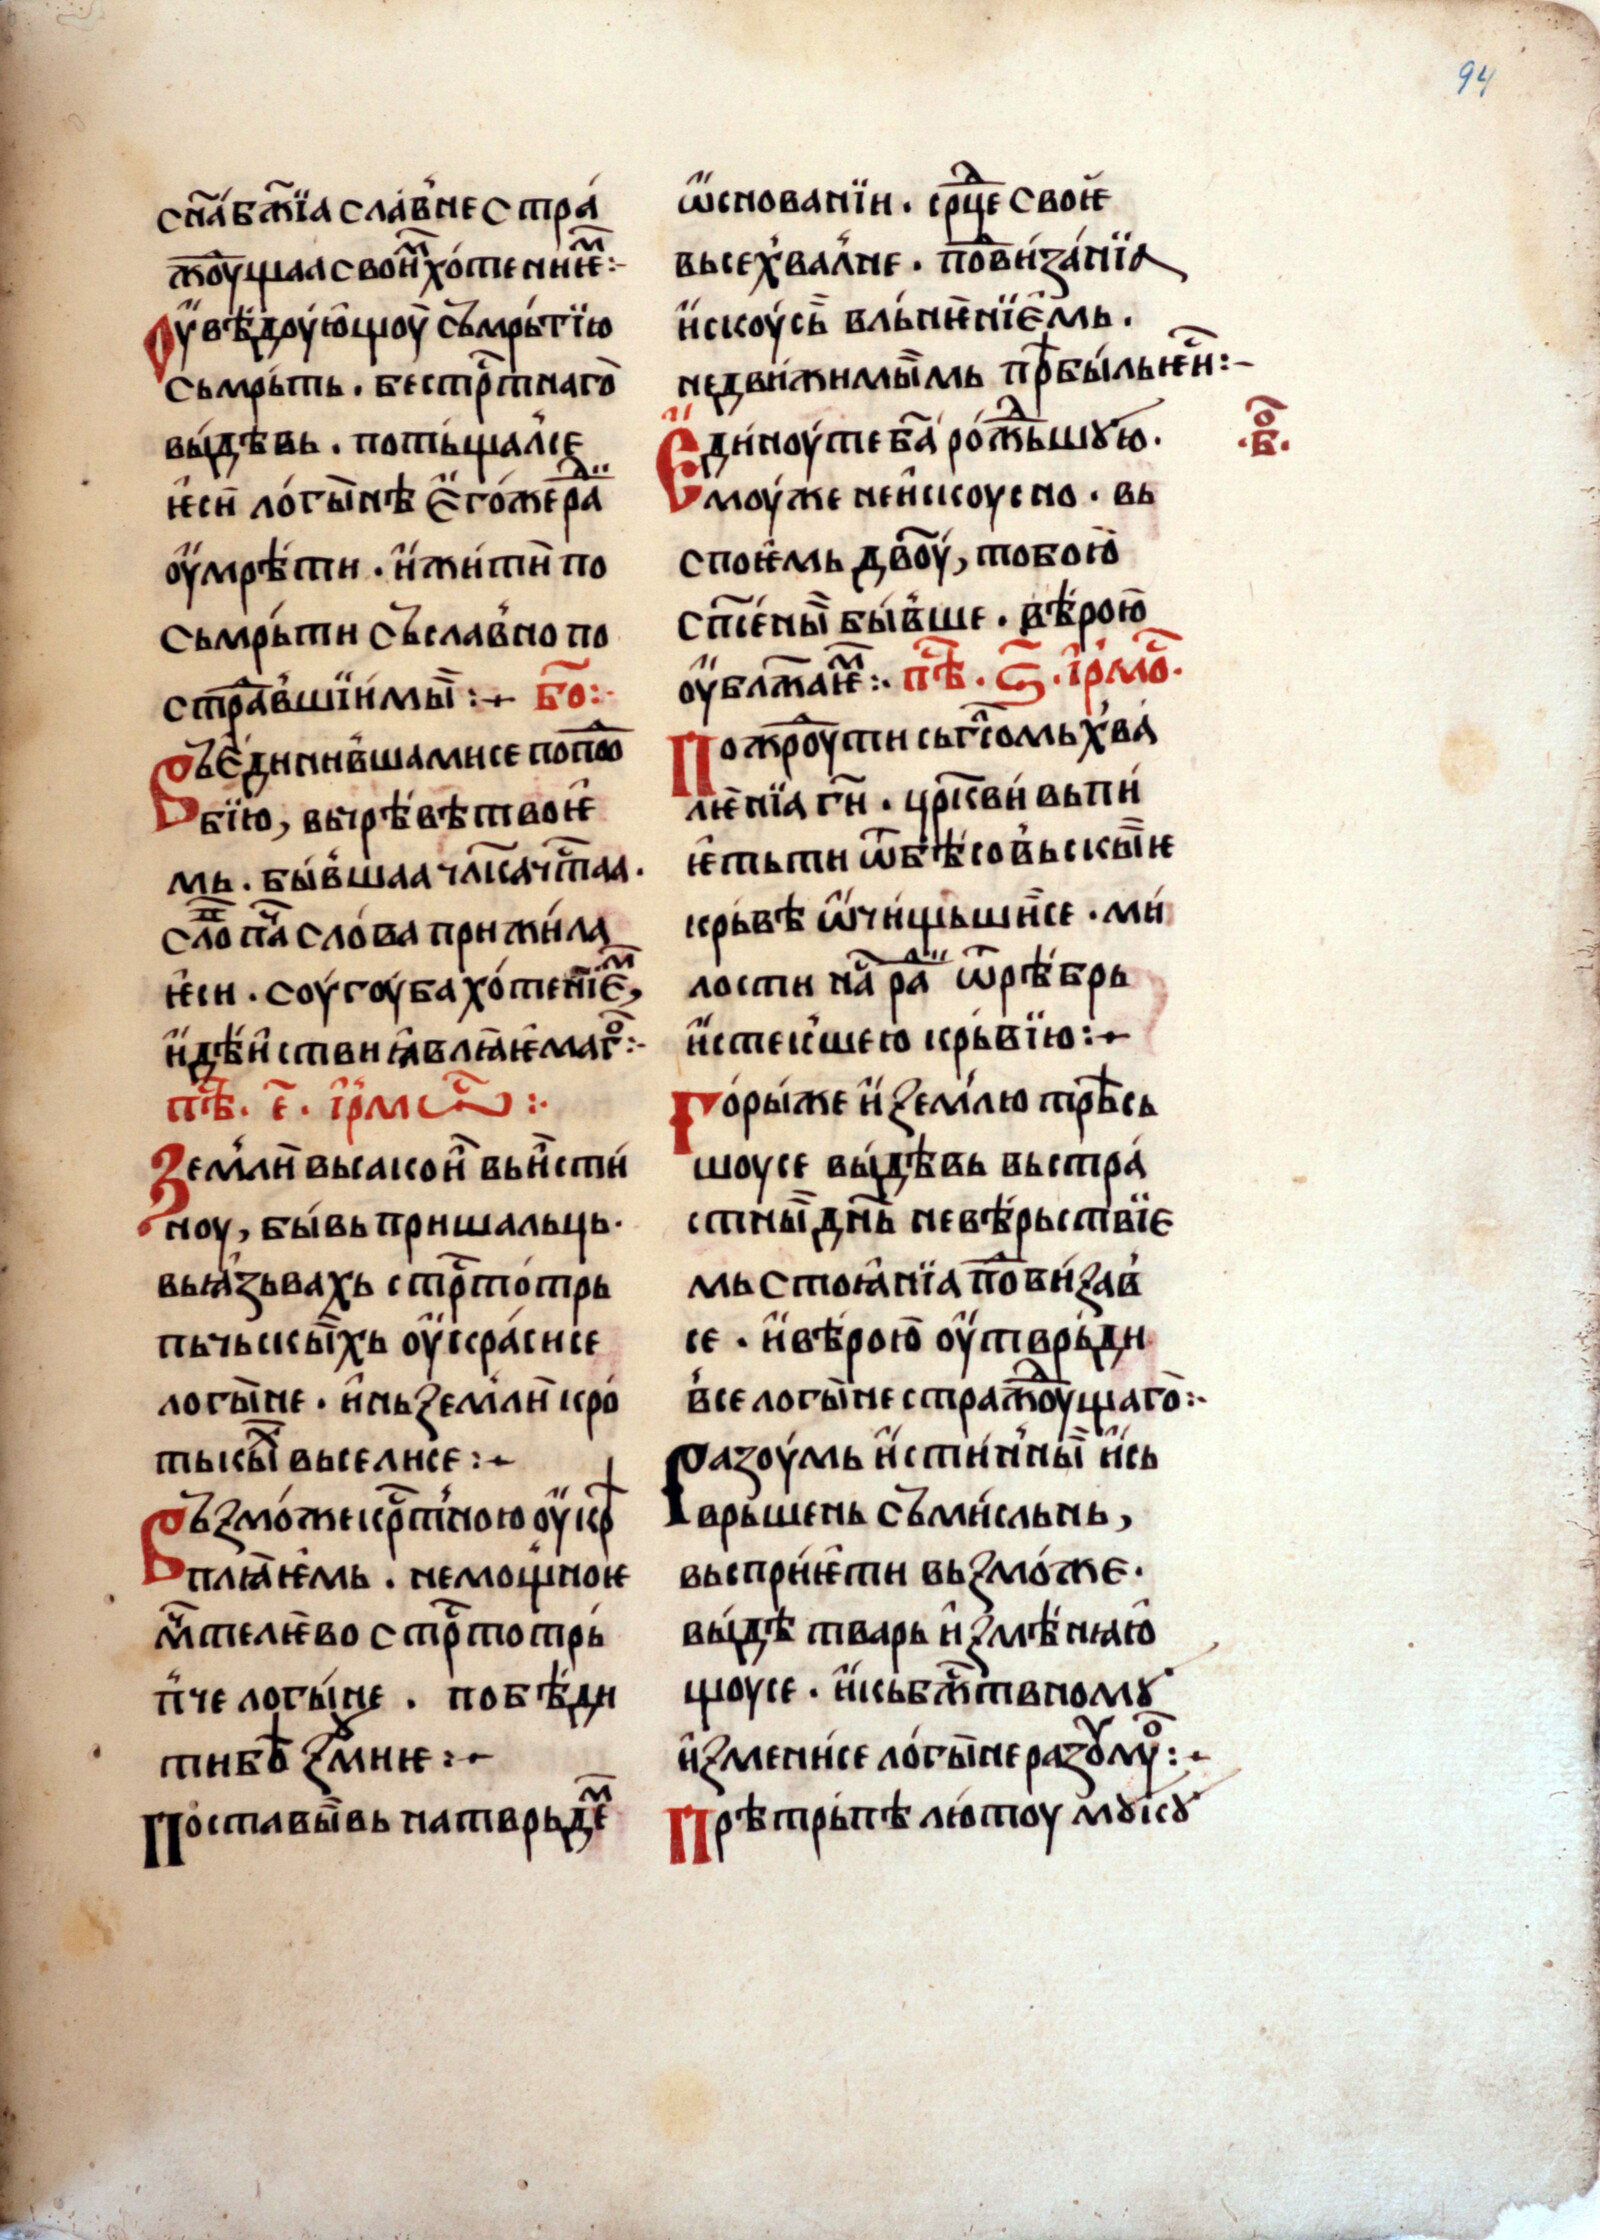 94
сн҃а бж҃їа славне стра
жⷣоущаа своиⷨ хотенникⷨ:·
Оувѣдоующоу съмрьтїю
сьмрьть. бестрⷭтнаго
выдѣвь. потьщалсе
ѥси логынѣ ѥгоже раⷣи
оумрѣти. и жити по
сьмрьти съславно по
стрⷣавшїимы:+ Боⷢ:·
Въѥдинившамисе попоⷣо
бїю, вьчрѣвѣ твоѥ
мь. бывшаа чл҃ка чⷭтаа.
слоⷡ паⷱ слова прижила
ѥси. соугоуба хотенїѥⷨ,
и дѣиствии ꙗвлꙗѥмагоⷢ:·
пѣⷭ. е҃. їрмⷭѡ:·
Землѥи высакои вьисти
ноу, бывь пришальць.
вьꙗзьвахь стрⷭтотрь
пьчьскыхь оукрасисе
логыне. и нь землѥи кро
тькыⷯ вьселисе:+
Възможе крⷭтною оукрѣ
плꙗѥмь. немощноѥ
мⷱ҃телѥво стрⷭтотрь
пче логыне. побѣди
ти боⷤ ꙁмиѥ:+
Поставывь на тврьдеⷨ
ѡсновании. срⷣце своѥ
вьсехвалне. поⷣвизанїа
искоусь вльнѥнїѥмь.
недвижимымь прѣбыль ѥсиⷭ:-
Единоу те бц҃а рожⷣьшꙋю.
·боⷢ·
ѥмоуже неискоусно. вь
споѥмь дв҃оу, тобою
сп҃сены бывше. вѣрою
оублжаѥⷨ:· пѣⷭ. ѕ҃. їрмоⷭ.
Пожроу ти сь глⷭомь хва
лѥнїа ги҃. цр҃кви вьпи
ѥть ти ѿ бѣсовьскыѥ
крьве ѡчищьшисе. ми
лости наⷭ раⷣи ѿ рѣбрь
истекшею крьвїю:+
Горы же и землю трѣсь
шоусе выдѣвь вьстра
стны дн҃ь невѣрьствїѥ
мь стоꙗнїа поⷣвизав
се. и вѣрою оутврьди
все логыне стражⷣоущаго:·
Разоумь истинны и сь
врьшень съмисльнь,
вьсприѥти вьзможе.
выдѣ тварь измѣнꙗю
щоусе. и кь бж҃твномꙋ
изменисе логыне разꙋмꙋоⷢ:+
Прѣтрьпѣ лютоу мꙋкꙋ